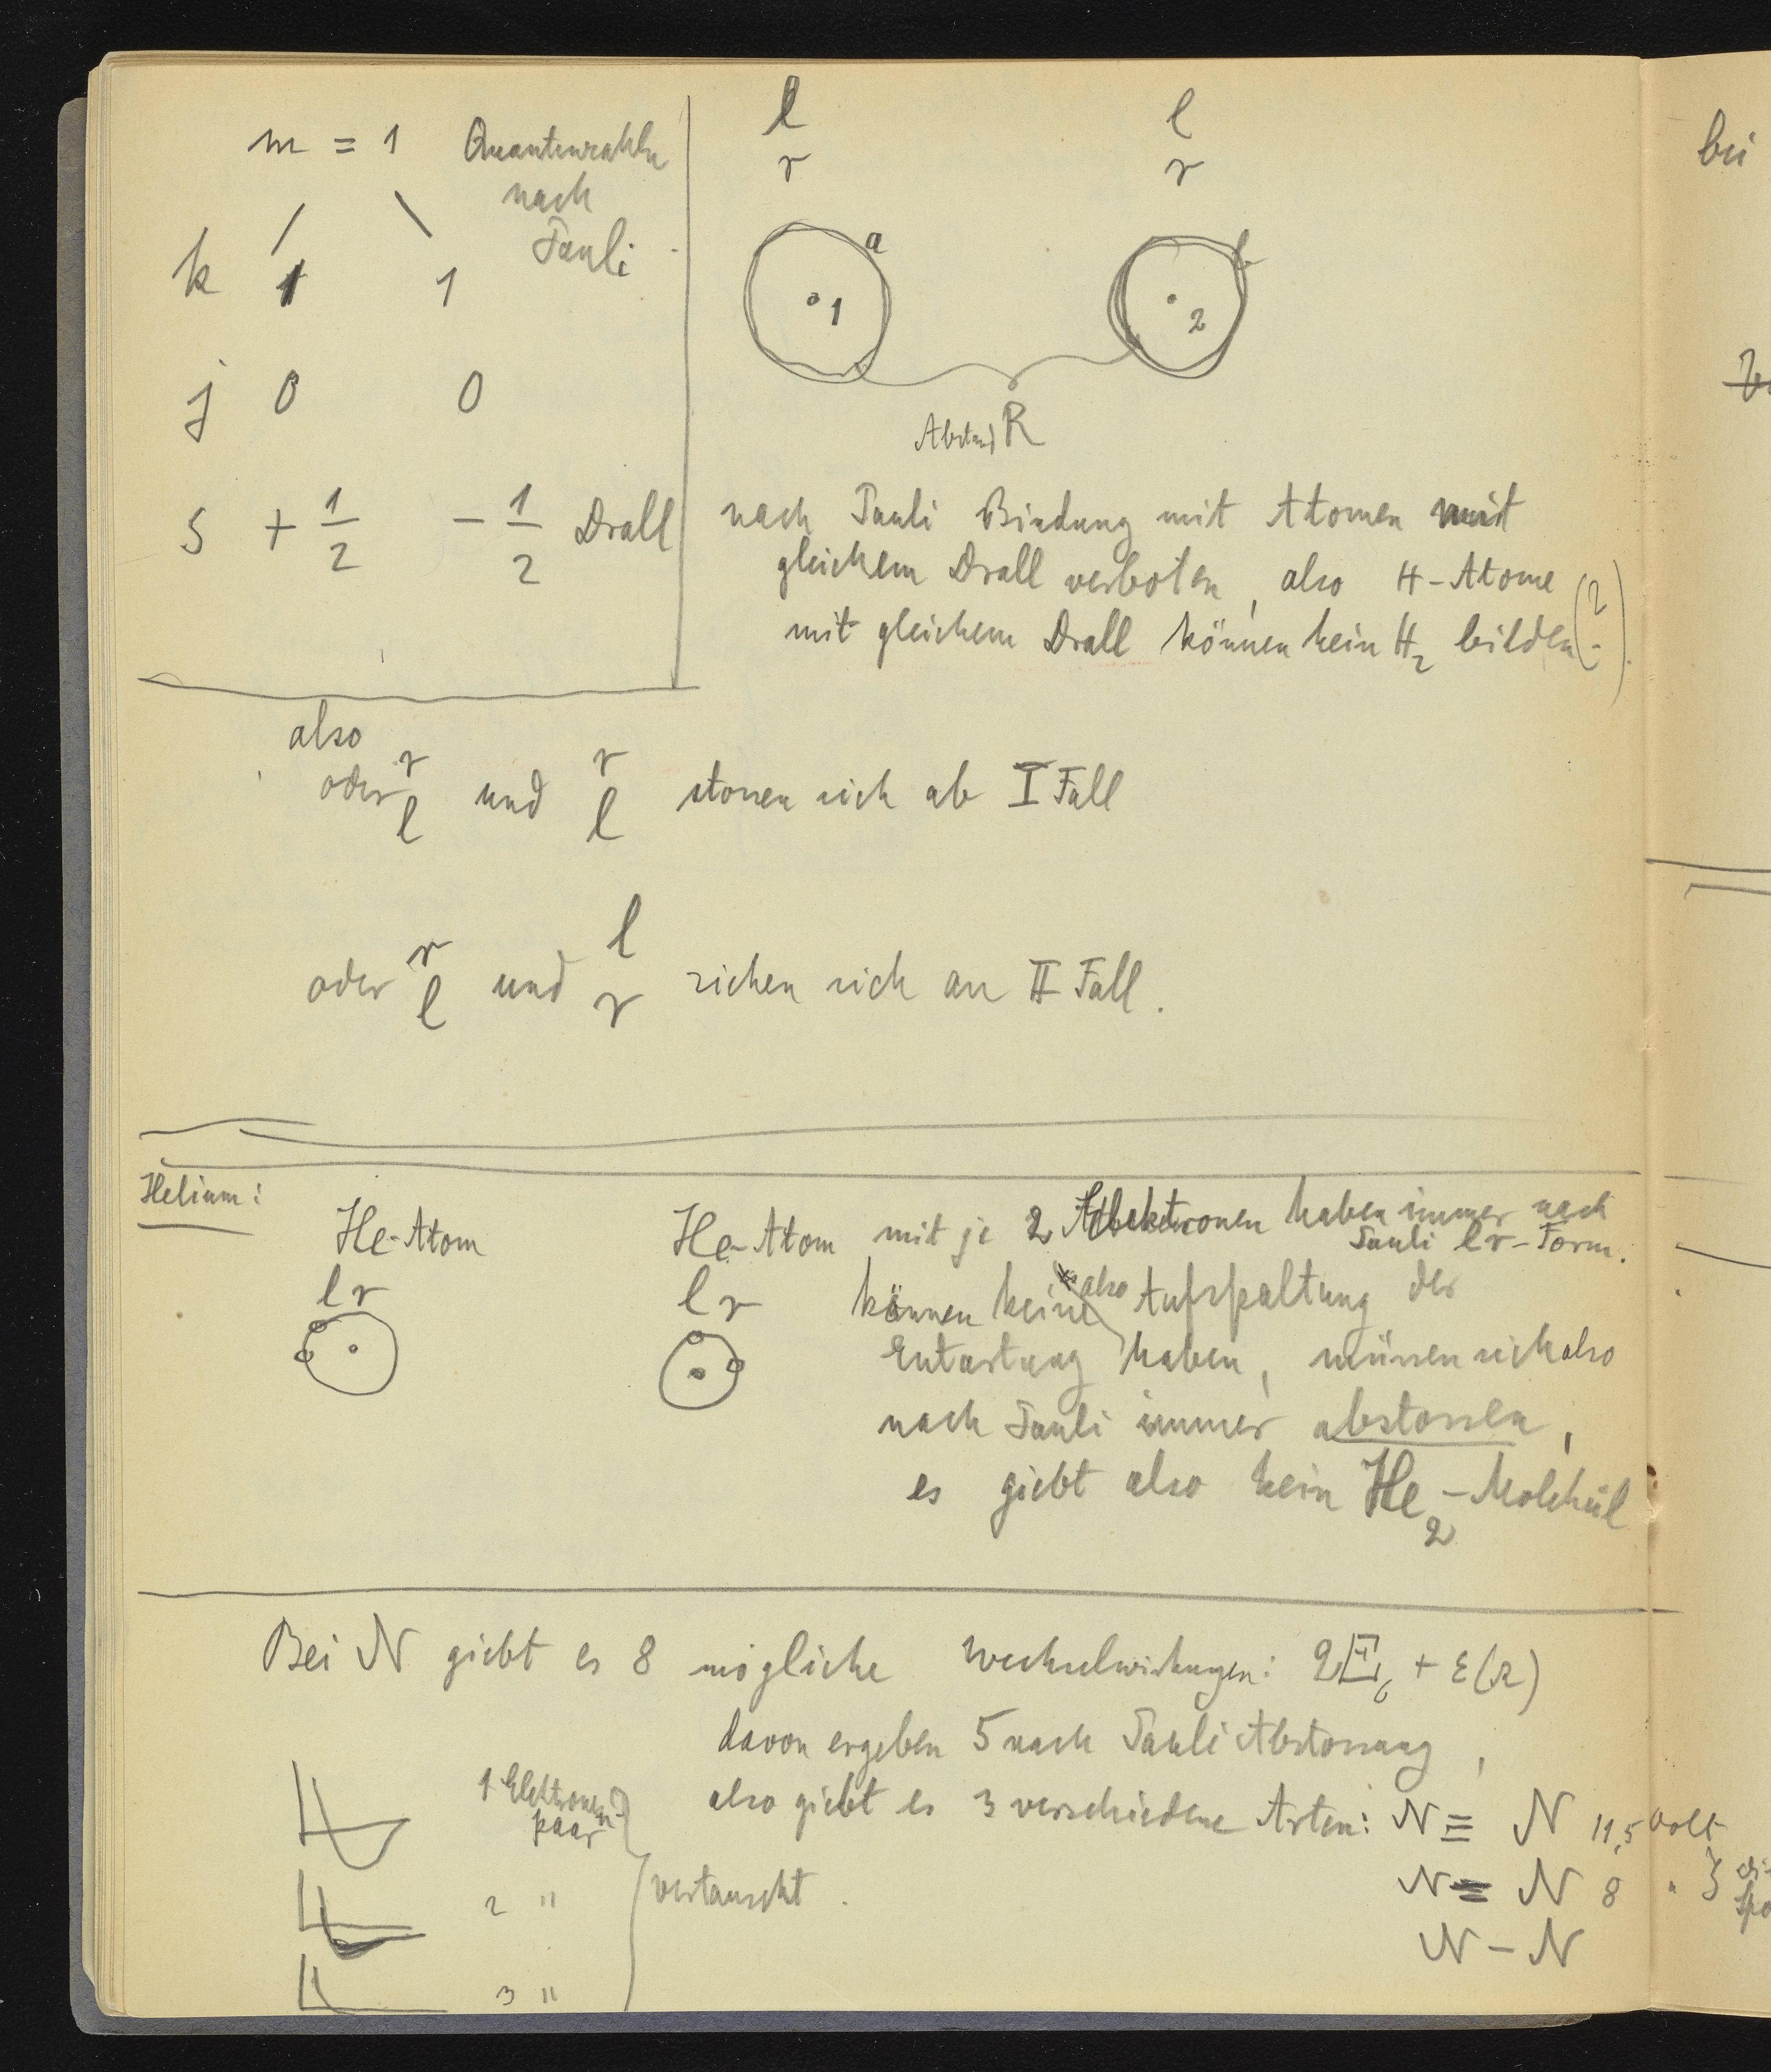 m = 1 Quantenzahlen
nach
Pauli
k 1 1
j 0 0
s + 1/2 - 1/2 Drall
l l
r r
a b
1 2
Abstand R
nach Pauli Bindung mit Atomen mit
gleichem Drall verboten, also H-Atome
mit gleichem Drall können kein H₂ bilden (?).
also
oder r l und r l stossen sich ab I Fall
oder r l und l r ziehen sich an II Fall.
Helium:
He-Atom He-Atom mit je 2 Elektronen haben immer nach
Pauli lr-Form.
l r l r
können keine also Aufspaltung der
Entartung haben, müssen sich also
nach Pauli immer abstossen,
es giebt also kein He₂-Molekül
Bei N giebt es 8 mögliche Wechselwirkungen: + ε(R)
davon ergeben 5 nach Pauli Abstossung,
also giebt es 3 verschiedene Arten: N ≡ N 11,5 Volt
1 Elektronen-
paar
2 " vertauscht. N = N 8 "
N - N
3 "
bei